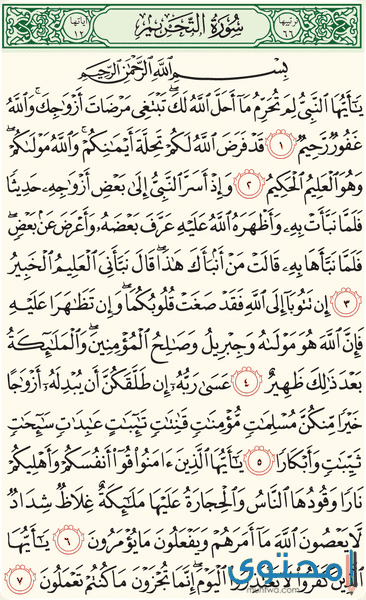 ترتيبها ٦٦ سُورَةُ التَّحْرِيمِ آياتها ١٢
بِسْمِ اللَّهِ الرَّحْمَٰنِ الرَّحِيمِ
يَٰٓأَيُّهَا ٱلنَّبِيُّ لِمَ تُحَرِّمُ مَآ أَحَلَّ ٱللَّهُ لَكَۖ تَبۡتَغِي مَرۡضَاتَ أَزۡوَٰجِكَۚ وَٱللَّهُ
غَفُورٞ رَّحِيمٞ ١ قَدۡ فَرَضَ ٱللَّهُ لَكُمۡ تَحِلَّةَ أَيۡمَٰنِكُمۡۚ وَٱللَّهُ مَوۡلَىٰكُمۡۖ
وَهُوَ ٱلۡعَلِيمُ ٱلۡحَكِيمُ ٢ وَإِذۡ أَسَرَّ ٱلنَّبِيُّ إِلَىٰ بَعۡضِ أَزۡوَٰجِهِۦ حَدِيثٗا
فَلَمَّا نَبَّأَتۡ بِهِۦ وَأَظۡهَرَهُ ٱللَّهُ عَلَيۡهِ عَرَّفَ بَعۡضَهُۥ وَأَعۡرَضَ عَنۢ بَعۡضٖۖ
فَلَمَّا نَبَّأَهَا بِهِۦ قَالَتۡ مَنۡ أَنۢبَأَكَ هَٰذَاۖ قَالَ نَبَّأَنِيَ ٱلۡعَلِيمُ ٱلۡخَبِيرُ
٣ إِن تَتُوبَآ إِلَى ٱللَّهِ فَقَدۡ صَغَتۡ قُلُوبُكُمَاۖ وَإِن تَظَٰهَرَا عَلَيۡهِ
فَإِنَّ ٱللَّهَ هُوَ مَوۡلَىٰهُ وَجِبۡرِيلُ وَصَٰلِحُ ٱلۡمُؤۡمِنِينَۖ وَٱلۡمَلَٰٓئِكَةُ
بَعۡدَ ذَٰلِكَ ظَهِيرٌ ٤ عَسَىٰ رَبُّهُۥٓ إِن طَلَّقَكُنَّ أَن يُبۡدِلَهُۥٓ أَزۡوَٰجًا
خَيۡرٗا مِّنكُنَّ مُسۡلِمَٰتٖ مُّؤۡمِنَٰتٖ قَٰنِتَٰتٖ تَٰٓئِبَٰتٍ عَٰبِدَٰتٖ سَٰٓئِحَٰتٖ
ثَيِّبَٰتٖ وَأَبۡكَارٗا ٥ يَٰٓأَيُّهَا ٱلَّذِينَ ءَامَنُواْ قُوٓاْ أَنفُسَكُمۡ وَأَهۡلِيكُمۡ
نَارٗا وَقُودُهَا ٱلنَّاسُ وَٱلۡحِجَارَةُ عَلَيۡهَا مَلَٰٓئِكَةٌ غِلَاظٞ شِدَادٞ
لَّا يَعۡصُونَ ٱللَّهَ مَآ أَمَرَهُمۡ وَيَفۡعَلُونَ مَا يُؤۡمَرُونَ ٦ يَٰٓأَيُّهَا
ٱلَّذِينَ كَفَرُواْ لَا تَعۡتَذِرُواْ ٱلۡيَوۡمَۖ إِنَّمَا تُجۡزَوۡنَ مَا كُنتُمۡ تَعۡمَلُونَ ٧
محتوى
muhtwa.com